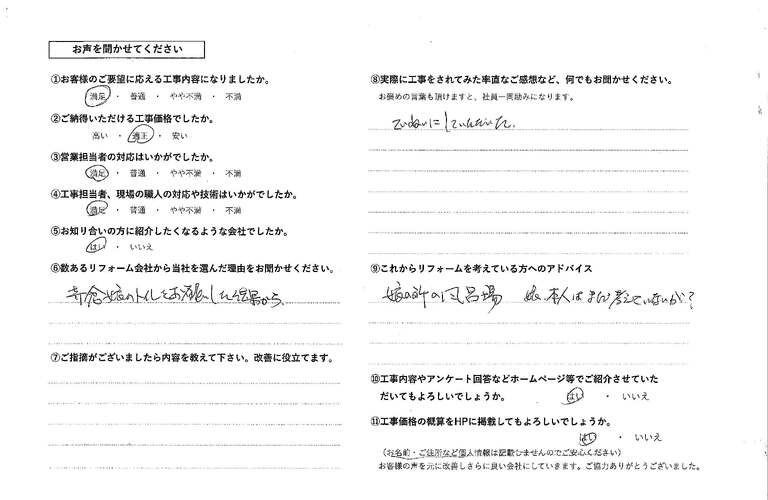 お声を聞かせてください
①お客様のご要望に応える工事内容になりましたか。
満足 ・ 普通 ・ やや不満 ・ 不満
②ご納得いただける工事価格でしたか。
高い ・ 適正 ・ 安い
③営業担当者の対応はいかがでしたか。
満足 ・ 普通 ・ やや不満 ・ 不満
④工事担当者、現場の職人の対応や技術はいかがでしたか。
満足 ・ 普通 ・ やや不満 ・ 不満
⑤お知り合いの方に紹介したくなるような会社でしたか。
はい ・ いいえ
⑥数あるリフォーム会社から当社を選んだ理由をお聞かせください。
娘のトイレをお願いした結果から
⑦ご指摘がございましたら内容を教えて下さい。改善に役立てます。
⑧実際に工事をされてみた率直なご感想など、何でもお聞かせください。
お褒めの言葉も頂けますと、社員一同励みになります。
ていねいにしていただいた.
⑨これからリフォームを考えている方へのアドバイス
娘の所の風呂場 娘、本人はまだ考えていないが?
⑩工事内容やアンケート回答などホームページ等でご紹介させていた
だいてもよろしいでしょうか。 はい ・ いいえ
⑪工事価格の概算をHPに掲載してもよろしいでしょうか。
はい ・ いいえ
（お名前・ご住所など個人情報は記載しませんのでご安心ください）
お客様の声を元に改善しさらに良い会社にしていきます。ご協力ありがとうございました。